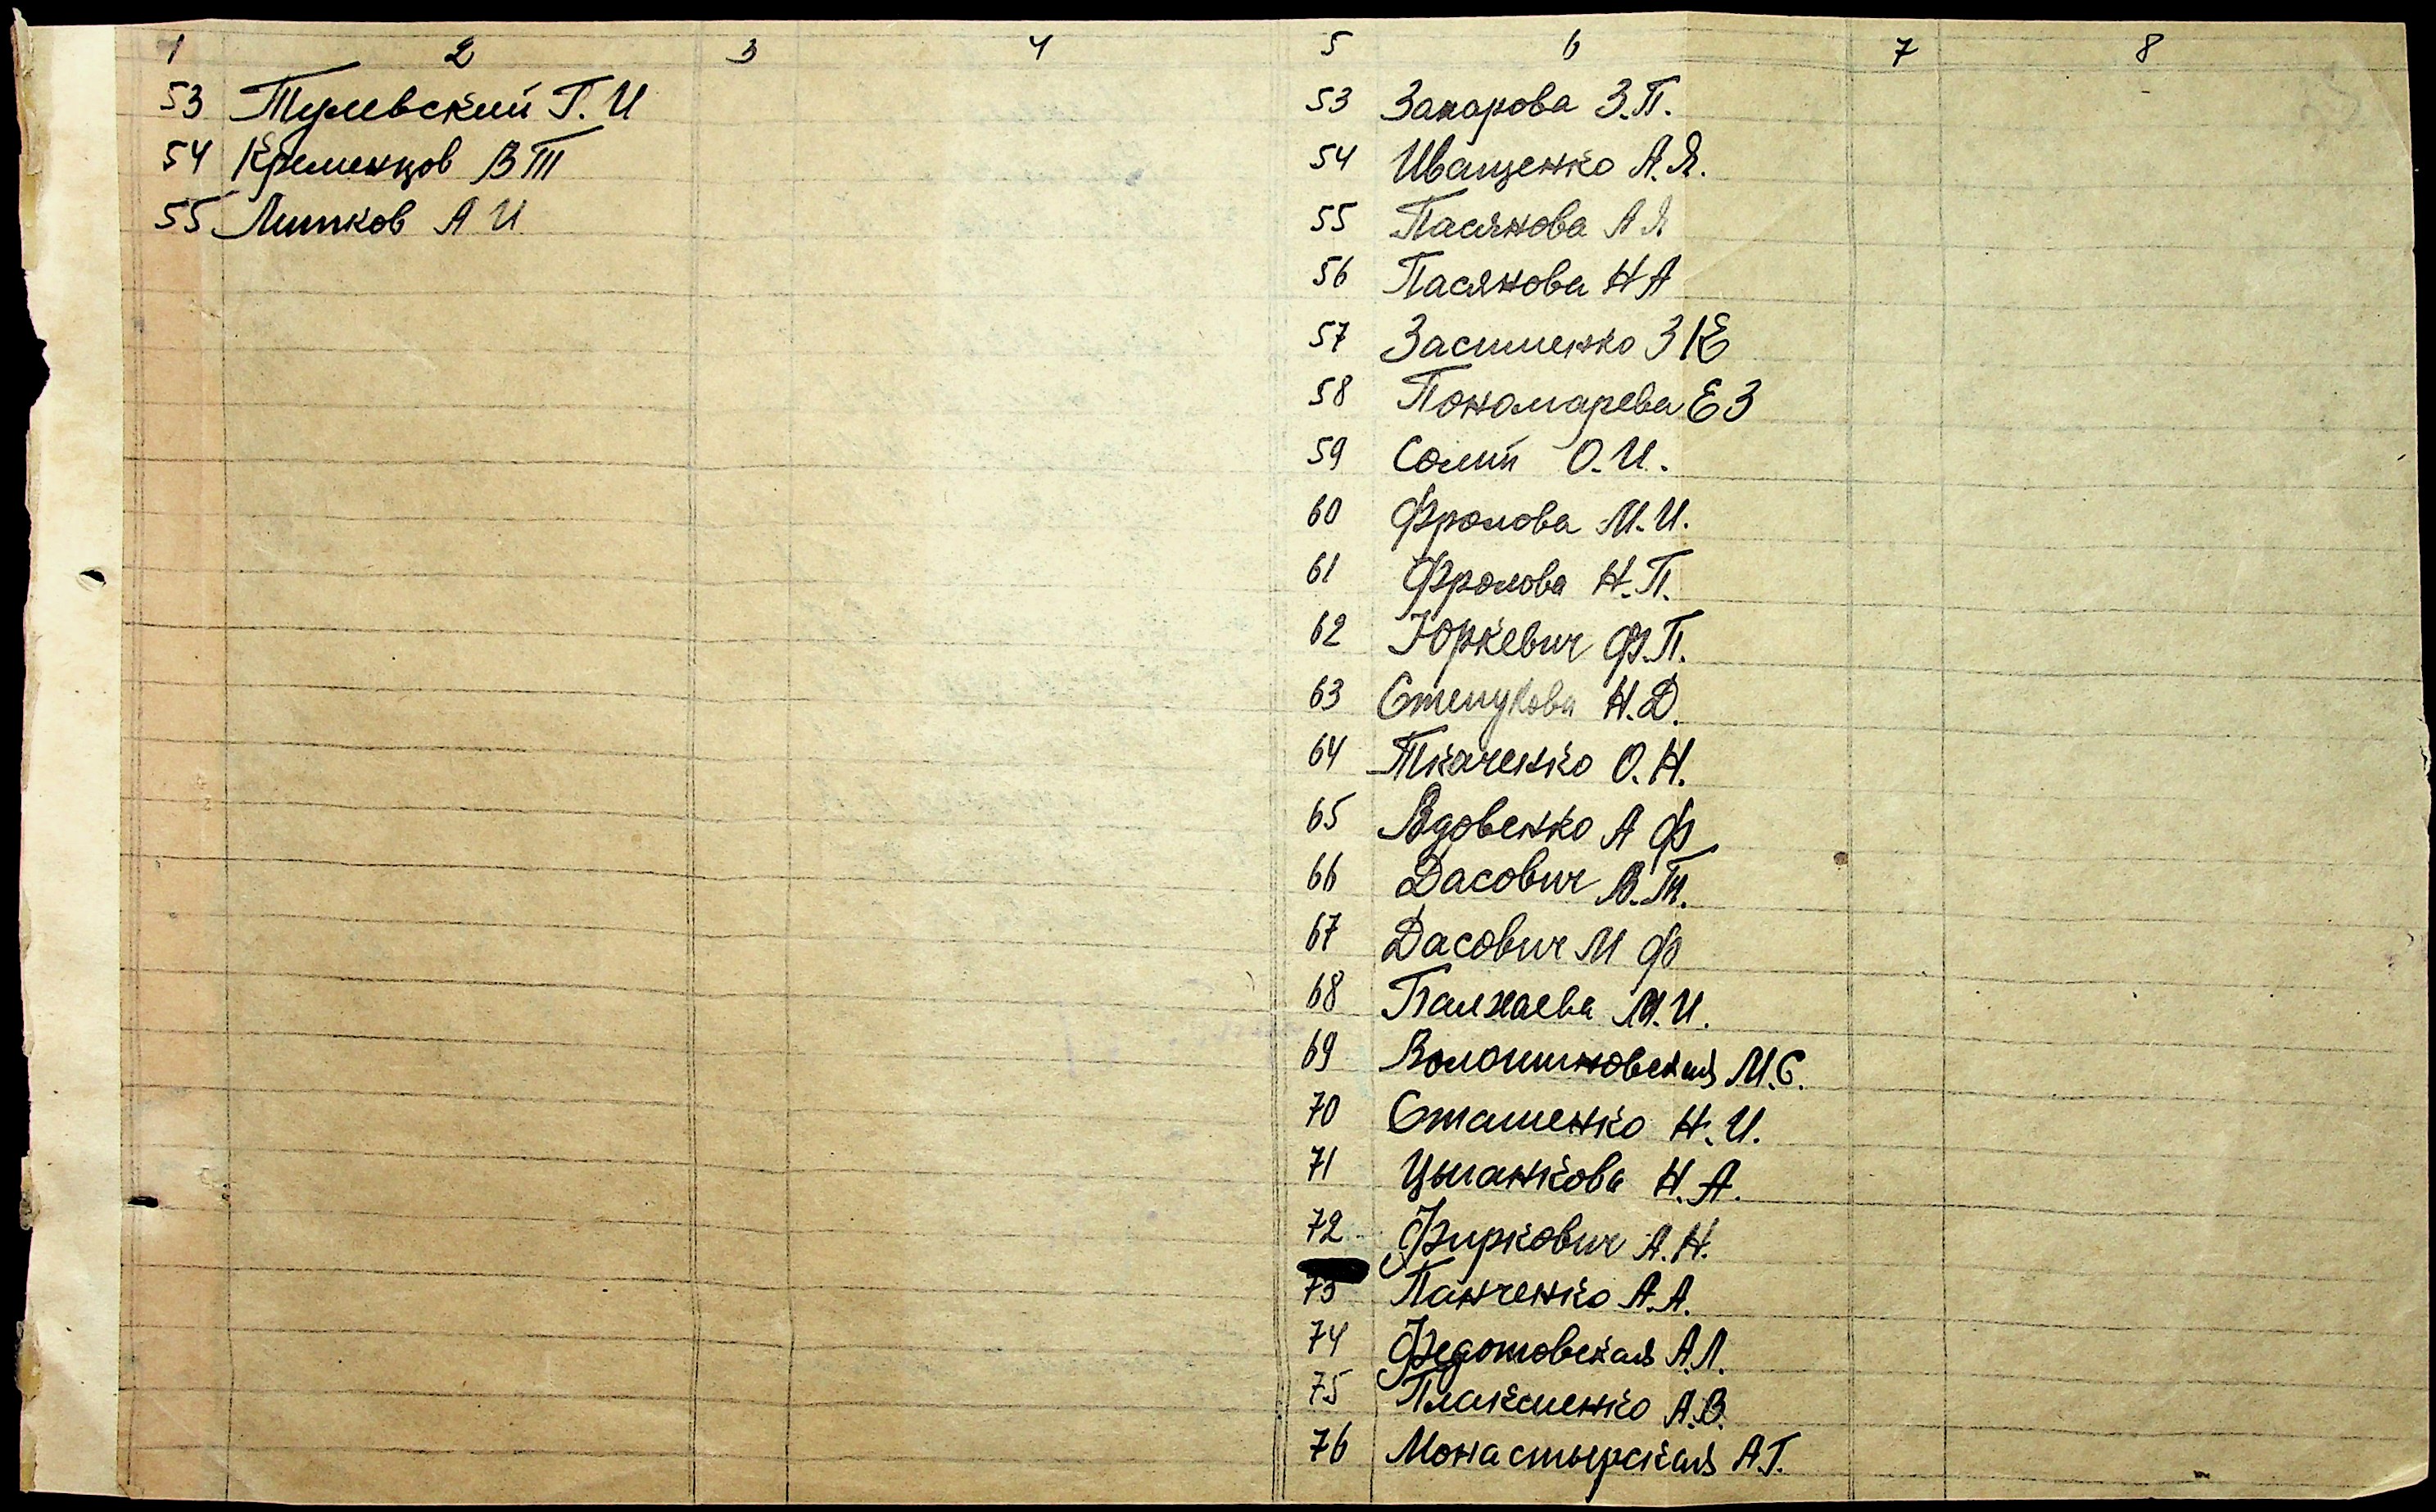 1 2 3 4 5 6 7 8
53 Тулевский Г. И 53 Захарова З.П.
54 Кременцов В Т 54 Иващенко А.Я.
55 Литков А И 55 Пасянова А Я
56 Пасянова Н А
57 Засименко З К
58 Пономарева Е З
59 Солит О.И.
60 Фролова М.И.
61 Фролова Н.П.
62 Юркевич Ф.П.
63 Стенукова Н.Д.
64 Ткаченко О.Н.
65 Вдовенко А Ф
66 Дасович В.Т.
67 Дасович М Ф
68 Палхаева М.И.
69 Волошиновская М.С.
70 Сташенко Н.И.
71 Цыганкова Н.А.
72 Фиркович А.Н.
73 Панченко А.А.
74 Федотовская А.Л.
75 Плаксиенко А.В.
76 Монастырская А.Г.